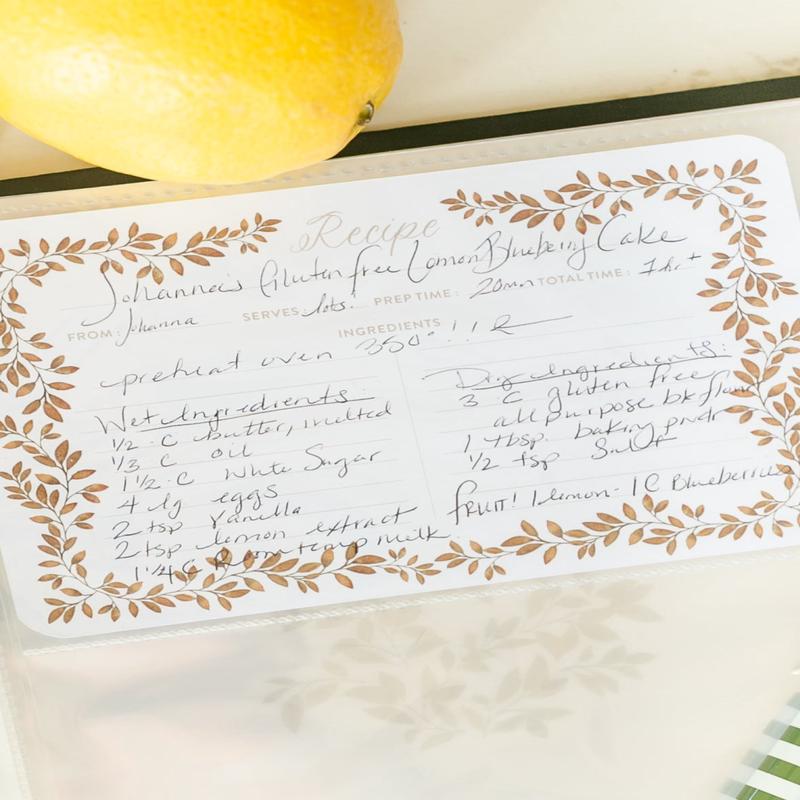 Recipe
Johanna's Gluten free Lemon Blueberry Cake
FROM: Johanna SERVES lots. PREP TIME: 20mn TOTAL TIME: 1hr+
INGREDIENTS
preheat oven 350° !!
Wet Ingredients:
1/2 C butter, melted
1/3 C oil
1 1/2 C White Sugar
4 lg eggs
2 tsp vanilla
2 tsp lemon extract
1 1/4 C Room temp milk
Dry Ingredients:
3 C gluten free
all purpose bk flour
1 tbsp. baking pwdr
1/2 tsp Salt
FRUIT! 1 lemon - 1C Blueberries